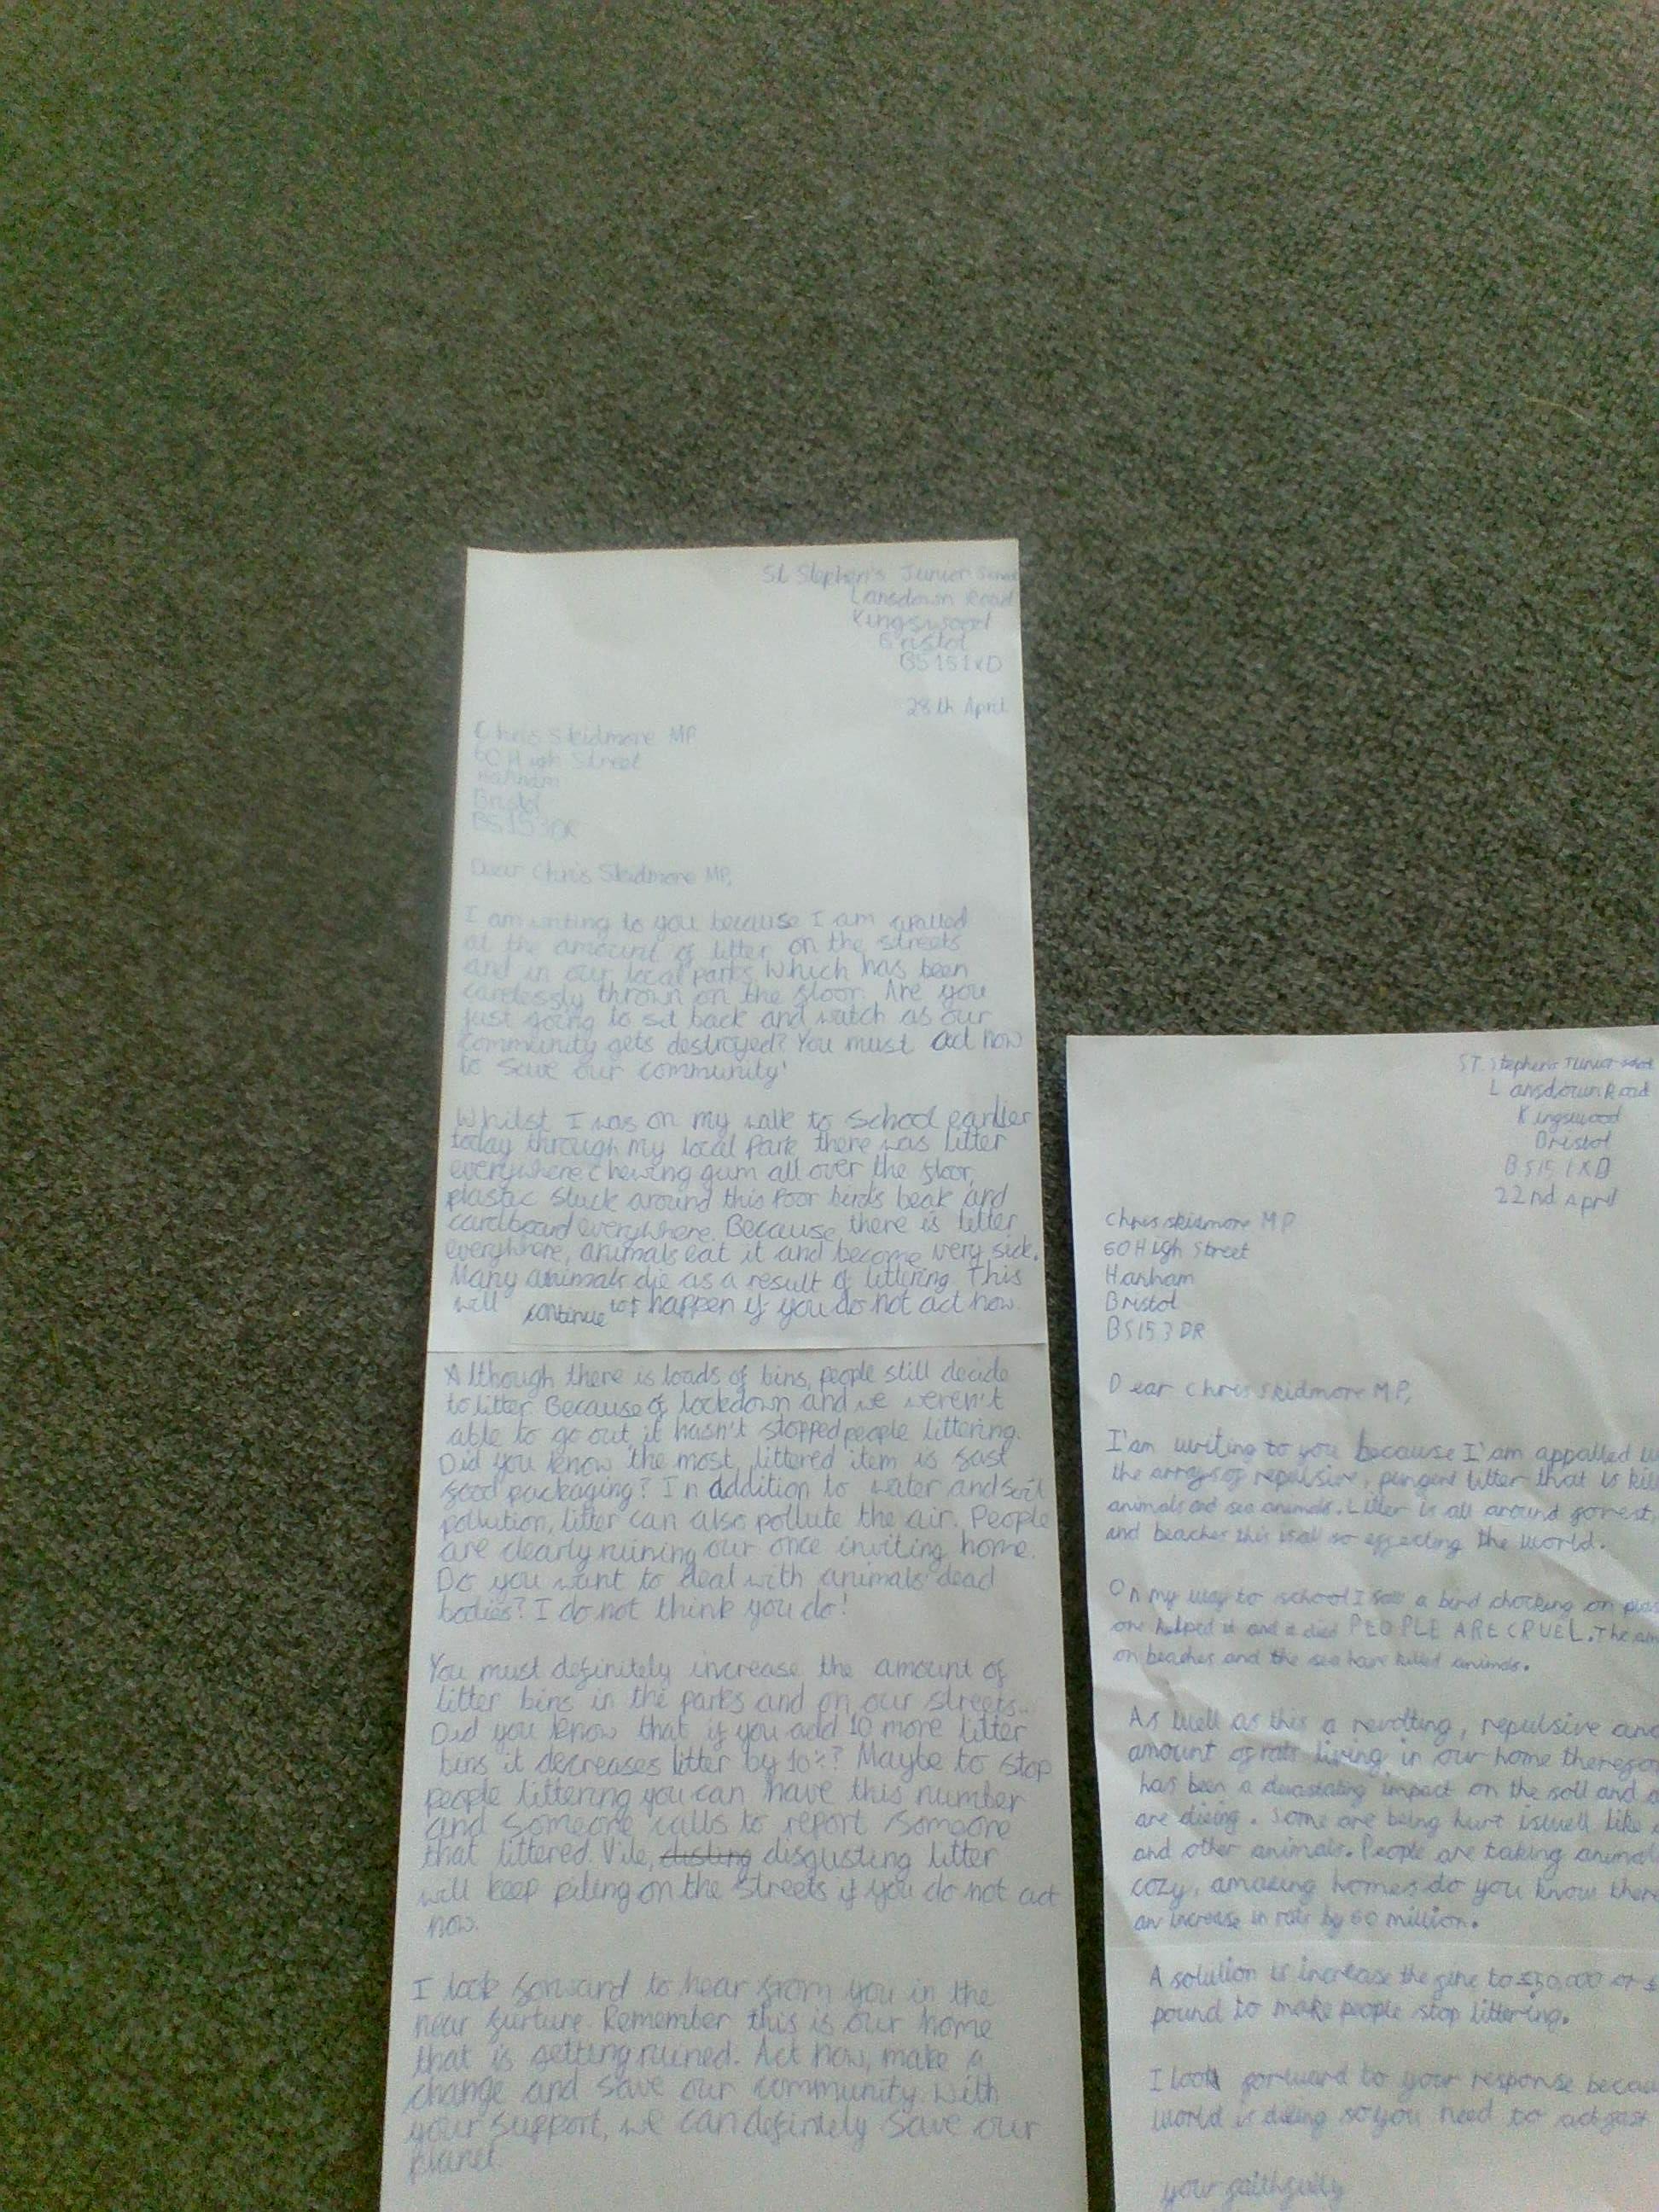 St Stephen's Junior School
Lansdown Road
Kingswood
Bristol
BS15 1XD
28th April
Chris Skidmore MP
60 High Street
Hanham
Bristol
BS15 3DR
Dear Chris Skidmore MP,
I am writing to you because I am apalled
at the amount of litter on the streets
and in our local parks which has been
carelessly thrown on the floor. Are you
just going to sit back and watch as our
community gets destroyed? You must act now
to save our community!
Whilst I was on my walk to school earlier
today through my local Park there was litter
everywhere chewing gum all over the floor,
plastic stuck around this Poor birds beak and
cardboard everywhere. Because there is litter
everywhere, animals eat it and become very sick.
Many animals die as a result of littering. This
will continue to happen if you do not act now.
Although there is loads of bins, people still decide
to litter. Because of lockdown and we weren't
able to go out, it hasn't stopped people littering.
Did you know the most littered item is fast
food packaging? In addition to water and soil
pollution, litter can also pollute the air. People
are clearly ruining our once inviting home.
Do you want to deal with animals' dead
bodies? I do not think you do!
You must definitely increase the amount of
litter bins in the parks and on our streets...
Did you know that if you add 10 more litter
bins it decreases litter by 10%? Maybe to stop
people littering you can have this number
and someone calls to report someone
that littered. Vile, disgusting litter
will keep piling on the streets if you do not act
now.
I look forward to hear from you in the
near furture. Remember this is our home
that is getting ruined. Act now, make a
change and save our community. With
your support, we can definitely save our
planet.
ST Stephens Junior school
Lansdown Road
Kingswood
Bristol
BS15 1XD
22nd April
Chris skidmore MP
60 High Street
Hanham
Bristol
BS15 3DR
Dear Chris Skidmore MP,
I'am writing to you because I'am appalled
the arrays of repulsive, pungent litter that is
animals and sea animals. Litter is all around forest,
and beaches this is all so effecting the world.
On my way to school I saw a bird chocking on
one helped it and it died PEOPLE ARE CRUEL. The
on beaches and the sea have killed animals.
As well as this a revolting, repulsive and
amount of rats living in our home
has been a devastating impact on the soil and
are dieing. Some are being hurt iswell like
and other animals. People are taking
cozy, amazing homes do you know
an increase in rats by 60 million.
A solution is increase the fine to £50,000 or
pound to make people stop littering.
I look forward to your response
world is dieing so you need to act fast
your faithfully